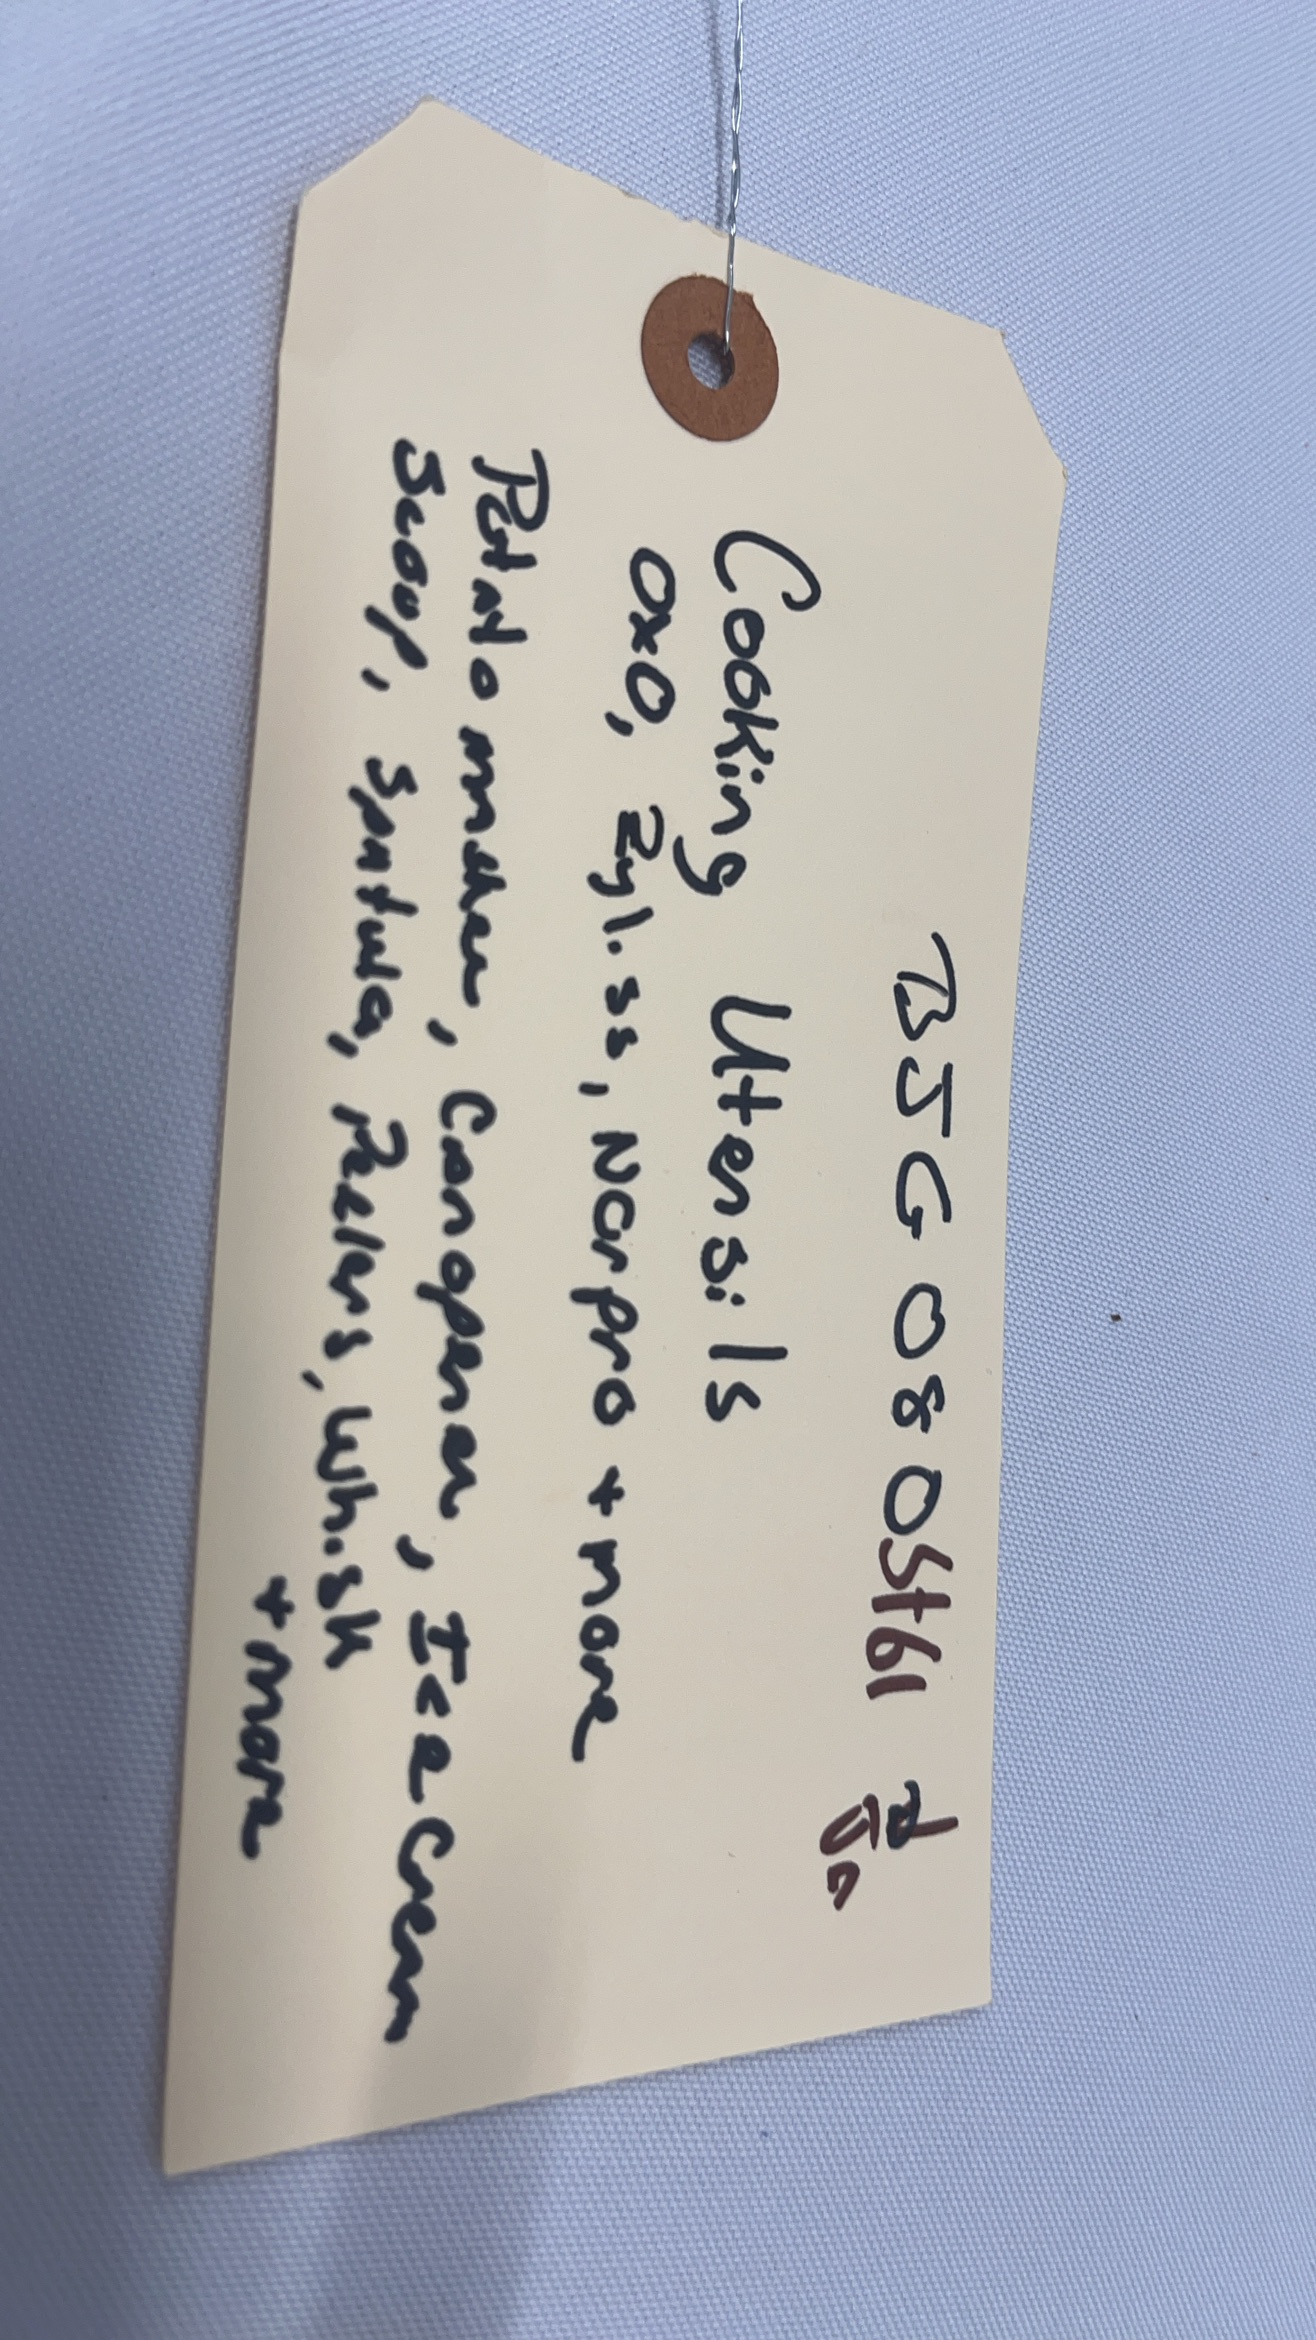 BJG 080
Cooking Utensils
OXO, Zyliss, Norpro + more
Potato masher, Can opener, Ice Cream
Scoop, Spatula, Peelers, Whisk
+ more